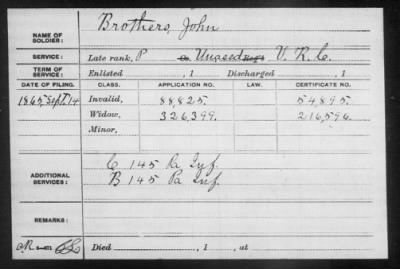 Brothers, John
NAME OF SOLDIER:
SERVICE: Late rank, P Co. Unassd Reg't V. R. C.
TERM OF SERVICE: Enlisted , 1 Discharged , 1
DATE OF FILING. CLASS. APPLICATION NO. LAW. CERTIFICATE NO.
1865 Sept. 14 Invalid, 88825. 54,895.
Widow, 326,399. 216,596.
Minor,
ADDITIONAL SERVICES: C 145 Pa Inf.
B 145 Pa Inf.
REMARKS:
Died , 1 , at